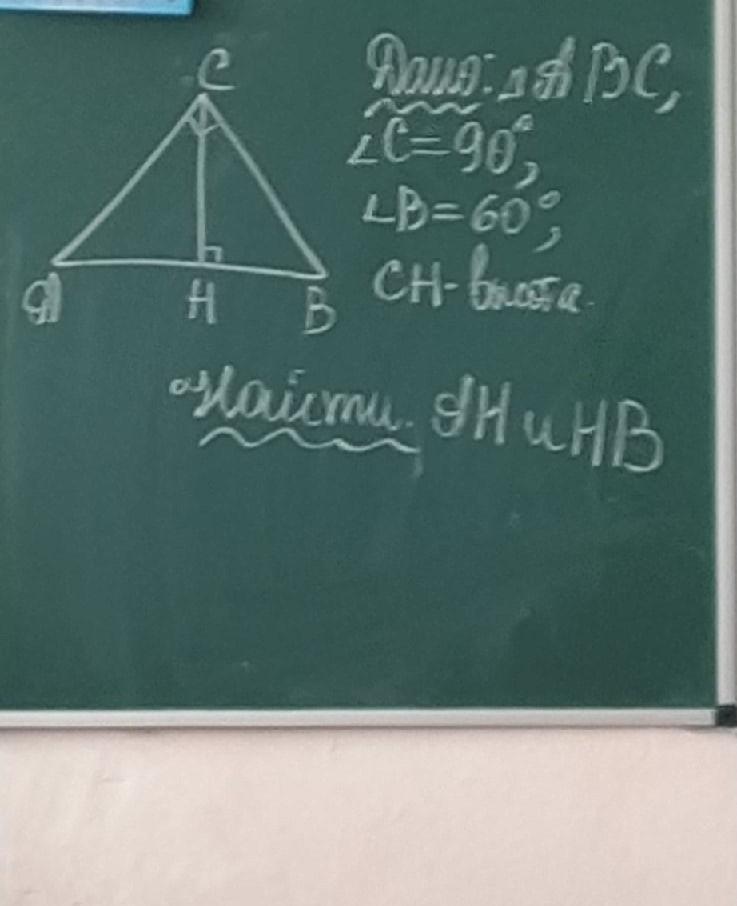 C
A
H
B
Дано: △ABC,
∠C=90°,
∠B=60°,
CH-высота.
Найти. AH и HB